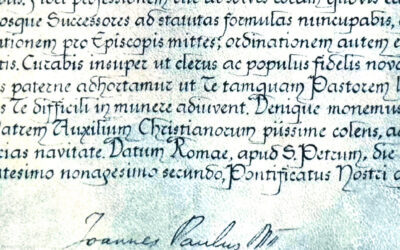 osque Successores ad statutas formulas nuncupabis,
tionem pro Episcopis mittes; ordinationem autem e
tis. Curabis insuper ut clerus ac populus fidelis nov
s paterne adhortamur ut Te tamquam Pastorem l
s Te difficili in munere adiuvent. Denique monemus
atrem Auxilium Christianorum piissime colens, a
cias navitate. Datum Romae, apud S. Petrum, die
tesimo nonagesimo secundo, Pontificatus Nostri
Joannes Paulus